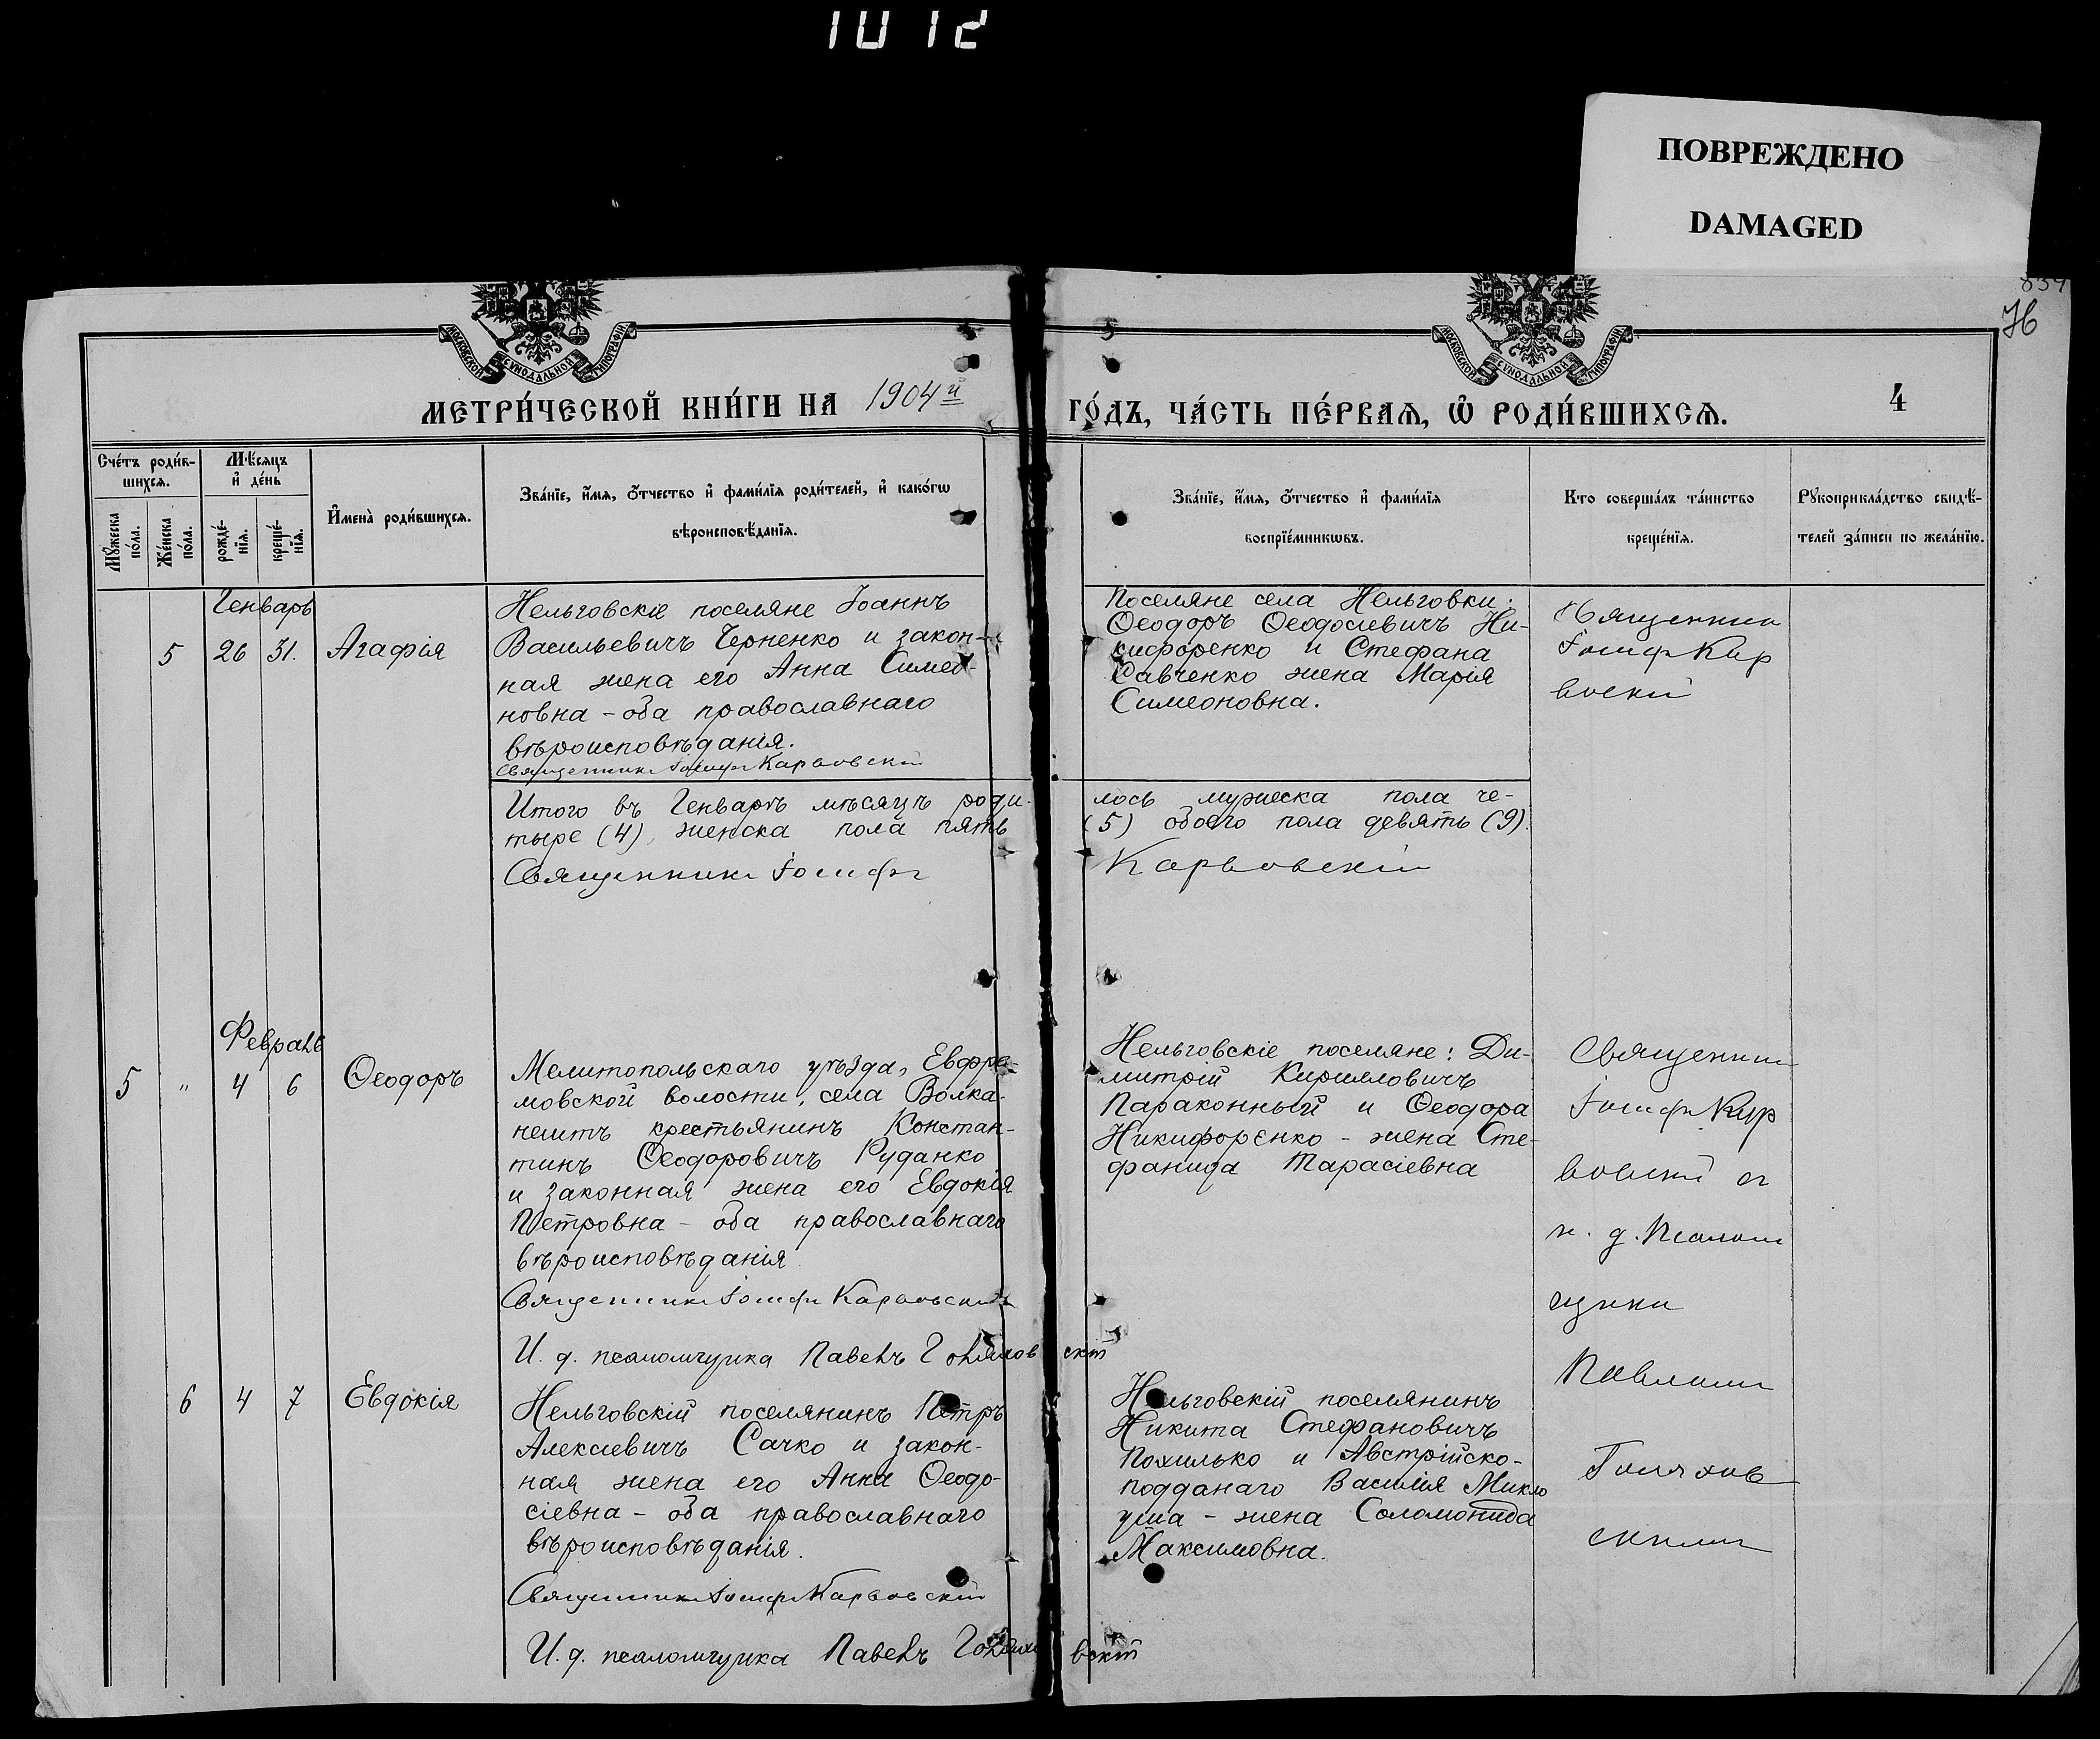 1012
ПОВРЕЖДЕНО
DAMAGED
76
МОСКОВСКОЙ СѴНОДАЛЬНОЙ ТИПОГРАФІИ
МОСКОВСКОЙ СѴНОДАЛЬНОЙ ТИПОГРАФІИ
МЕТРИ́ЧЕСКОЙ КНИ́ГИ НА 1904й ГО́ДЪ, ЧА́СТЬ ПЕ́РВАѦ, Ѡ҆ РОДИ́ВШИХСѦ.
4
Сче́тъ роди́в-
шихсѧ.
Мѣ́сяцъ
и҆ де́нь
Мꙋ́жеска
по́ла.
Же́нска
по́ла.
рожде́-
нїѧ.
креще́-
нїѧ.
И҆мена̀ роди́вшихсѧ.
Зва́нїе, и҆́мѧ, ѻ҆́тчество и҆ фами́лїѧ роди́телей, и҆ како́гѡ
вѣроисповѣ́данїѧ.
Зва́нїе, и҆́мѧ, ѻ҆́тчество и҆ фами́лїѧ
воспрїе́мникѡвъ.
Кто соверша́лъ та́инство
креще́нїѧ.
Рꙋкоприкла́дство свидѣ́-
телей за́писи по жела́нїю.
Генварь
5 26 31. Агафія
Нельговскіе поселяне Іоаннъ
Васильевичъ Черненко и закон-
ная жена его Анна Симео-
новна - оба православнаго
вѣроисповѣданія.
Священникъ Іосифъ Карвовскій
Поселяне села Нельговки:
Ѳеодоръ Ѳеодосіевичъ Ни-
кифоренко и Стефана
Савченко жена Марія
Симеоновна.
Священник
Іосиф Кар
вовскій
Итого въ Генварѣ мѣсяцѣ роди- лось мужеска пола че-
тыре (4), женска пола пять (5) обоего пола девять (9).
Священникъ Іосифъ Карвовскій
Февраль
5 " 4 6 Ѳеодоръ
Мелитопольскаго уѣзда, Евфре-
мовской волости, села Волка-
нештъ крестьянинъ Констан-
тинъ Ѳеодоровичъ Руданко
и законная жена его Евдокія
Петровна - оба православнаго
вѣроисповѣданія
Священникъ Іосифъ Карвовскій
И. д. псаломщика Павелъ Голяховскій
Нельговскіе поселяне: Ди-
митрій Кирилловичъ
Параконный и Ѳеодора
Никифоренко - жена Сте-
фанида Тарасіевна
Священник
Іосифъ Кар
вовскій съ
и. д. Псалом
щика
Павломъ
Голяхов
скимъ
6 4 7 Евдокія
Нельговскій поселянинъ Петръ
Алексіевичъ Сачко и закон-
ная жена его Анна Ѳеодо-
сіевна - оба православнаго
вѣроисповѣданія.
Священникъ Іосифъ Карвовскій
И. д. псаломщика Павелъ Голяховскій
Нельговскій поселянинъ
Никита Стефановичъ
Похилько и Австрійско-
подданаго Василія Микло
уша - жена Соломонида
Максимовна.